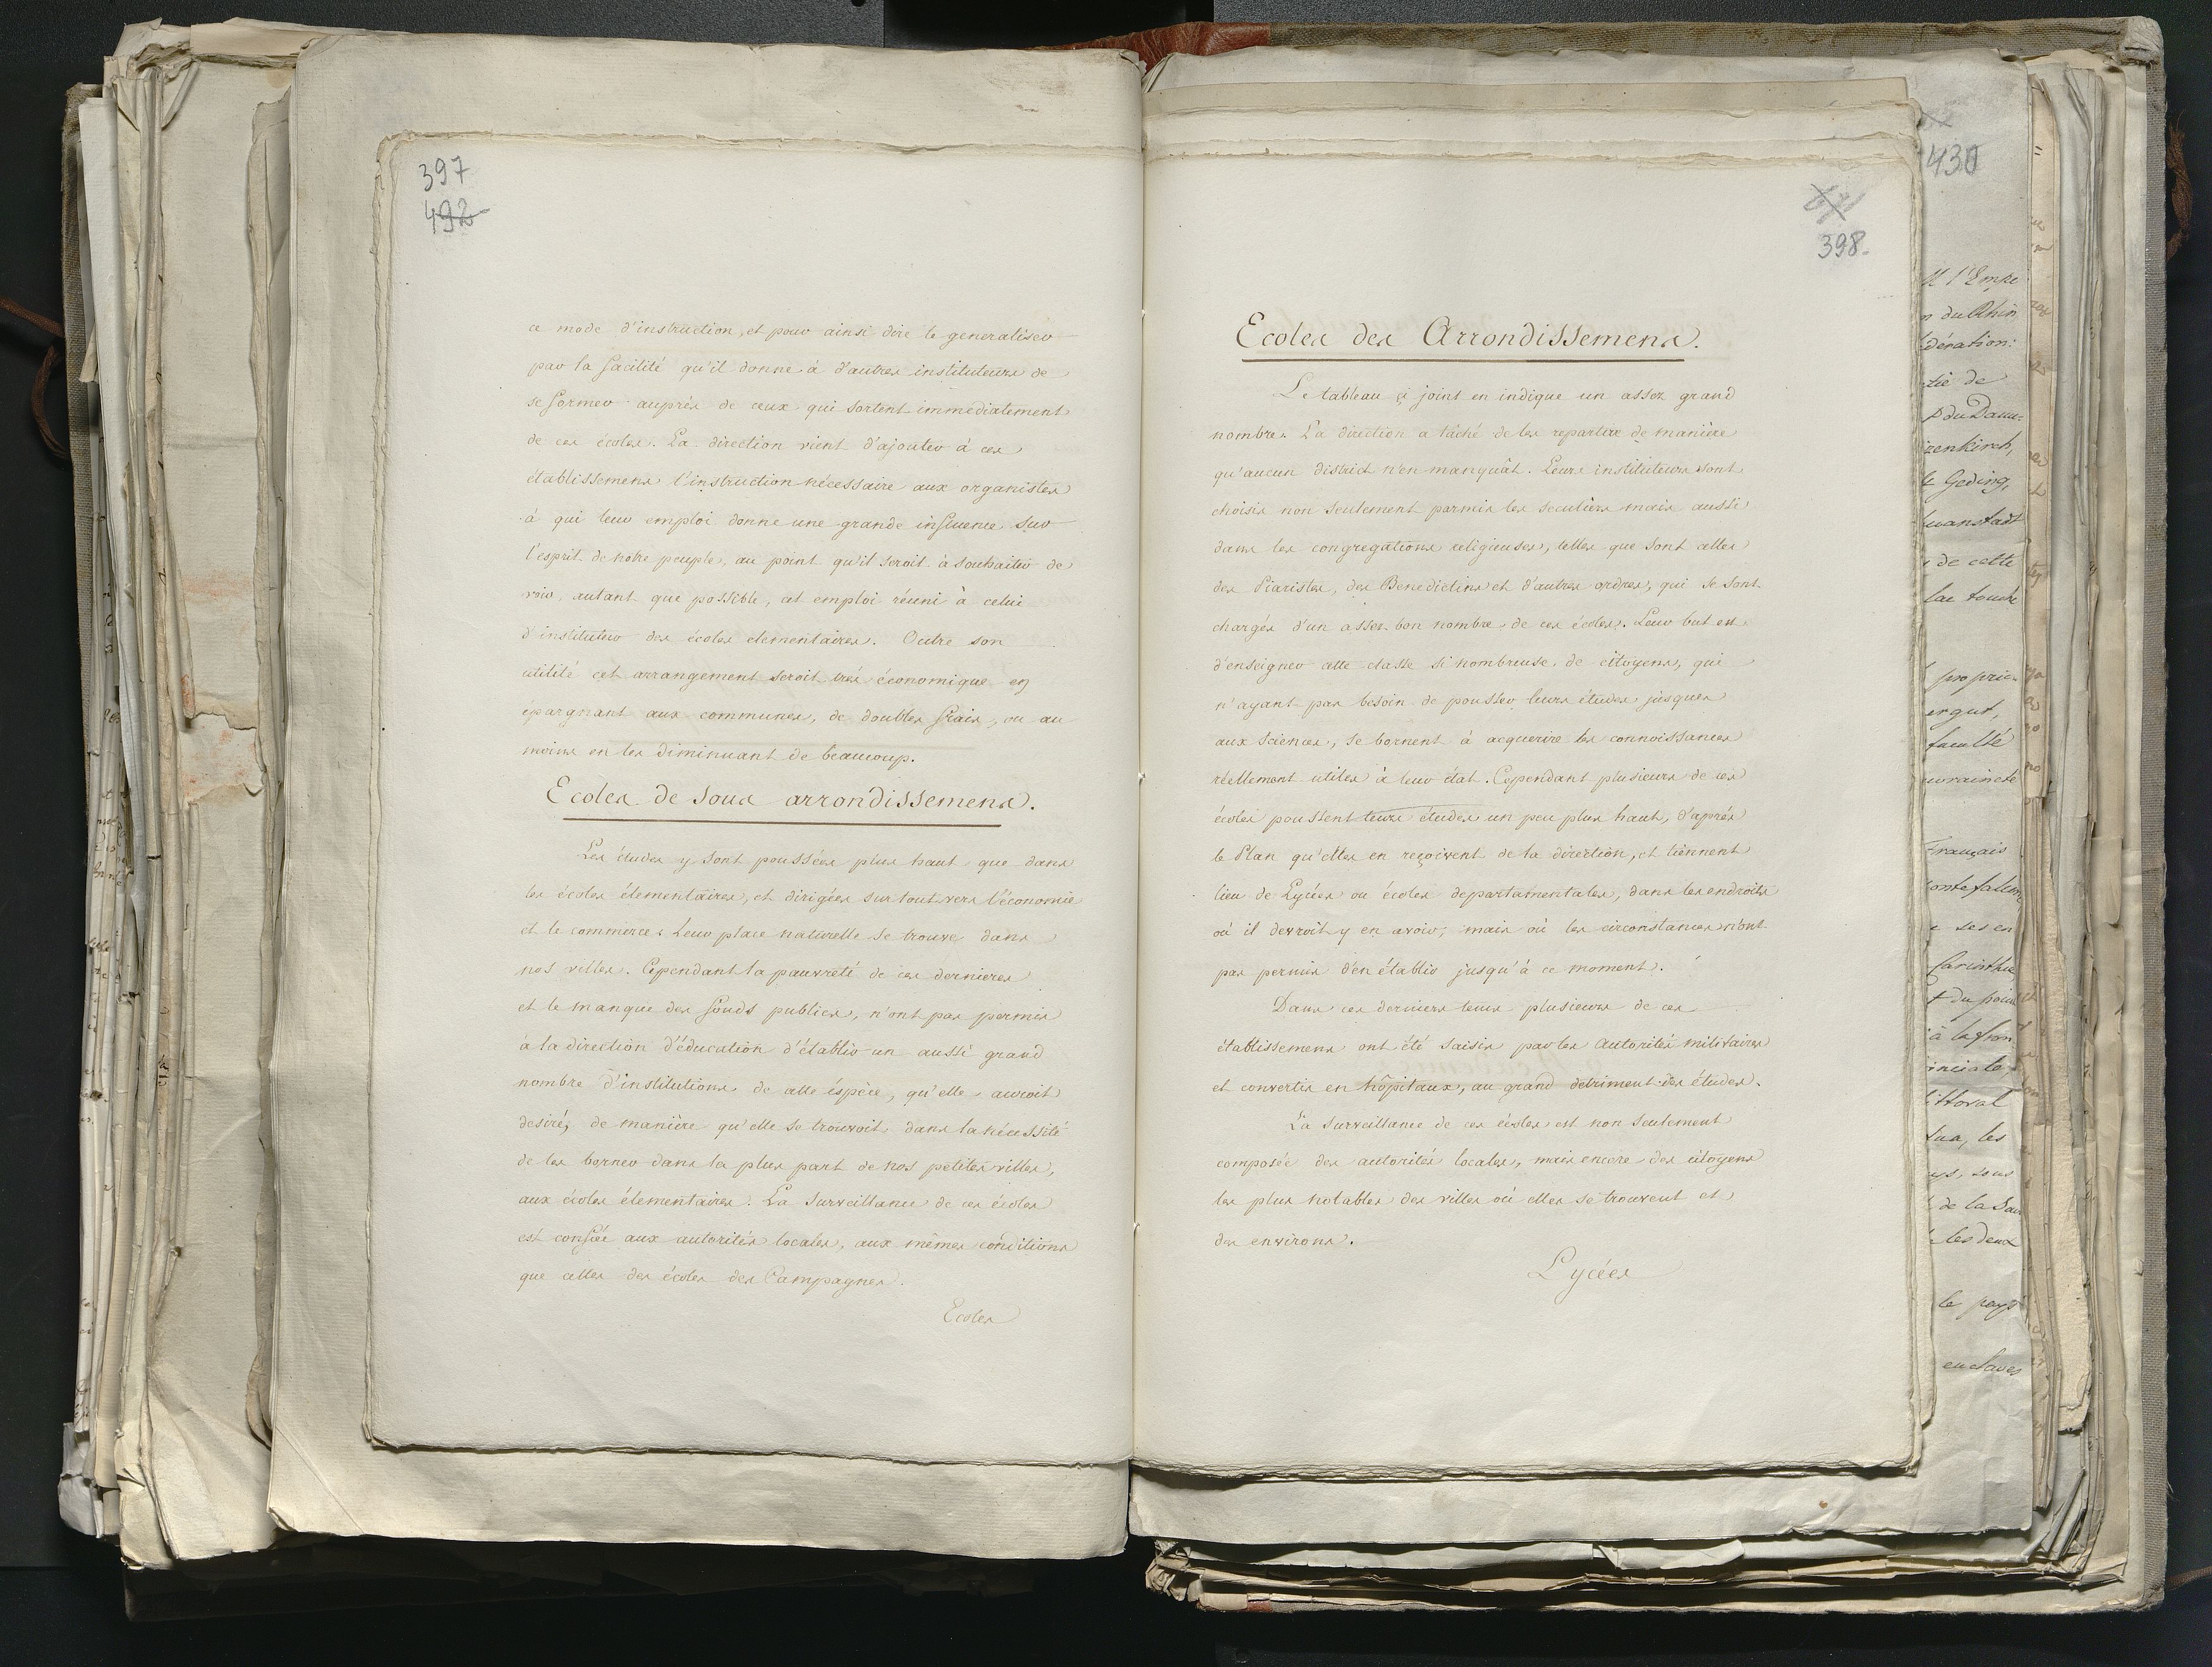 397
492
ce mode d'instruction, et pour ainsi dire le generaliser
par la facilité qu'il donne à d'autres instituteurs de
se former auprès de ceux qui sortent immediatement
de ces écoles. La direction vient d'ajouter à ces
établissemens l'instruction nécessaire aux organistes
à qui leur emploi donne une grande influence sur
l'esprit de notre peuple, au point qu'il seroit à souhaiter de
voir, autant que possible, cet emploi réuni à celui
d'instituteur des écoles elementaires. Outre son
utilité cet arrangement seroit très économique en
épargnant aux communes, de doubles frais, ou au
moins en les diminuant de beaucoup.
Ecoles de sous arrondissemens.
Les études y sont poussées plus haut que dans
les écoles élementaires, et dirigées surtout vers l'économie
et le commerce. Leur place naturelle se trouve dans
nos villes. Cependant la pauvreté de ces dernieres
et le manque des fonds publics, n'ont pas permis
à la direction d'éducation d'établir un aussi grand
nombre d'institutions de cette éspèce, qu'elle auroit
desiré, de manière qu'elle se trouvoit dans la nécessité
de les borner dans la plus part de nos petites villes,
aux écoles élementaires. La surveillance de ces écoles
est confiée aux autorités locales, aux mêmes conditions
que celles des écoles des Campagnes.
Ecoles
398.
Ecoles des Arrondissemens.
Le tableau çi joint en indique un assez grand
nombre. La direction a tâché de les repartire de manière
qu'aucun district n'en manquât. Leurs instituteurs sont
choisis non seulement parmis les seculiers mais aussi
dans les congregations religieuses, telles que sont celles
des Piaristes, des Benedictins et d'autres ordres, qui se sont
chargés d'un assez bon nombre de ces écoles. Leur but est
d'enseigner cette classe si nombreuse de citoyens, qui
n'ayant pas besoin de pousser leurs études jusques
aux sciences, se bornent à acquerire les connoissances
réellement utiles à leur état. Cependant plusieurs de ces
écoles poussent leurs études un peu plus haut, d'après
le Plan qu'elles en reçoivent de la direction, et tiennent
lieu de Lycées ou écoles departamentales, dans les endroits
où il devroit y en avoir, mais où les circonstances n'ont
pas permis d'en établir jusqu'à ce moment.
Dans ces derniers tems plusieurs de ces
établissemens ont été saisis par les Autorités militaires
et convertis en hôpitaux, au grand detriment des études.
La surveillance de ces écoles est non seulement
composée des autorités locales, mais encore des citoyens
les plus notables des villes où elles se trouvent et
des environs.
Lycées
430
l'Empi
du Rhin
dération:
tié de
p du Danu=
zenkirch,
Geding,
wanstadt
de cette
lac touche
propriè
ergut,
faculté
uvraineté
Français
ontefalcon
ses en
Carinthie
t du point
à la fron
inciale,
ittoral
les
sous
de la Sav
les deux
le pays
enclaves